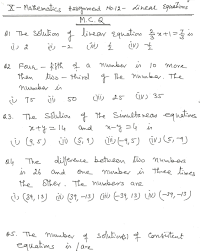 X - Mathematics Assignment No 12 - Linear Equations
M.C.Q
Q1 The solution of linear equation 5/2 x + 1 = 7/2 is
(i) 2 (ii) -2 (iii) 1 (iv) -1
Q2. Four-fifth of a number is 10 more
than two-third of the number. The
number is
(i) 75 (ii) 50 (iii) 25 (iv) 35
Q3. The Solution of the Simultaneous equations
x+y = 14 and x-y = 4 is
(i) (9,5) (ii) (5,9) (iii) (-9,5) (iv) (5,-9)
Q4 The difference between two numbers
is 26 and one number is three times
the other. The numbers are
(i) (39,13) (ii) (39,-13) (iii) (-39,13) (iv) (-39,-13)
Q5. The number of solution(s) of consistent
equations is/are